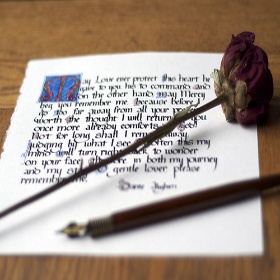 May Love ever protect this heart he
gave to you his to command and
on the other hand may Mercy
beg you remember me because before I
go too far away from all your
worth the thought I will return you
once more already comforts
Not for long shall I remain away
judging by what I see often this my
mind will turn right back to wonder
on your face in both my journey
and my gentle lover please
remember me
Dante